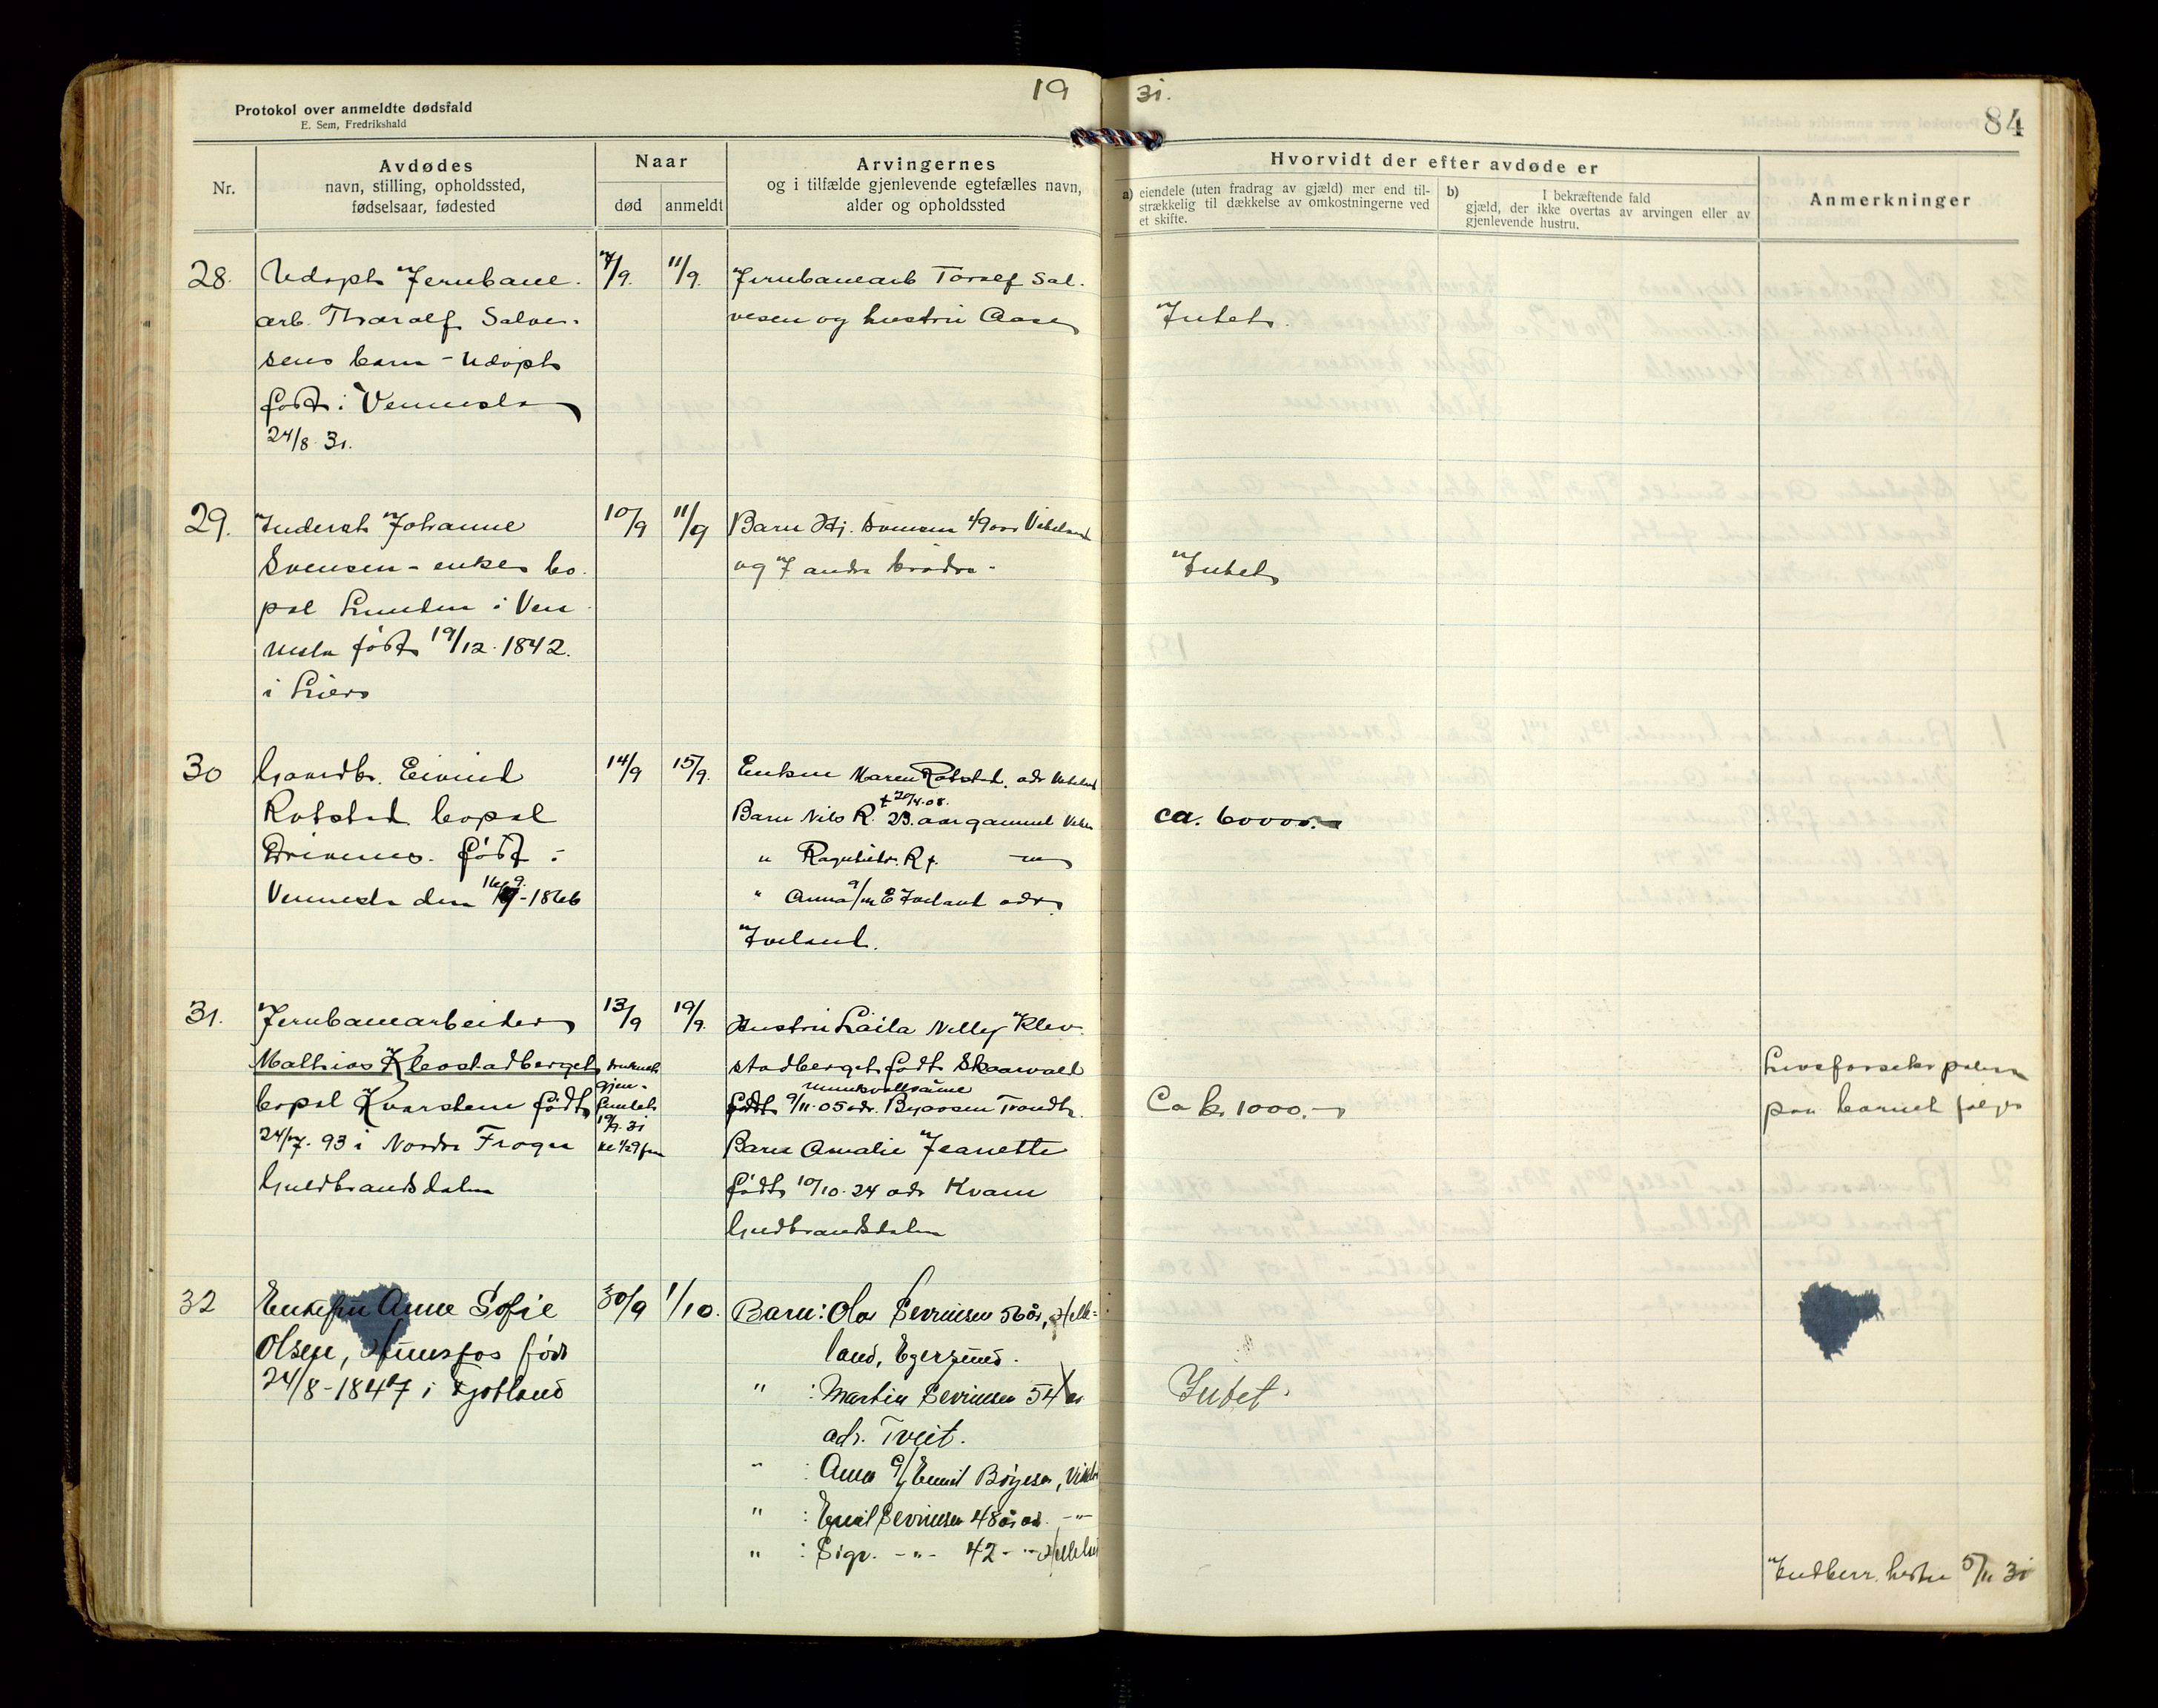 Protokol over anmeldte dødsfald
E. Sem, Fredrikshald
19
31.
84
Nr.
Avdødes
navn, stilling, opholdssted,
fødselsaar, fødested
Naar
død
anmeldt
Arvingernes
og i tilfælde gjenlevende egtefælles navn,
alder og opholdssted
Hvorvidt der efter avdøde er
a) eiendele (uten fradrag av gjæld) mer end til-
strækkelig til dækkelse av omkostningerne ved
et skifte.
b) I bekræftende fald
gjæld, der ikke overtas av arvingen eller av
gjenlevende hustru.
Anmerkninger
28.
Udøpt Jernbane-
arb. Tharalf Salve-
sens barn - udøpt
født i Vennesla
24/8 31.
7/9.
11/9.
Jernbanearb Toralf Sal-
vesen og hustru Aase
Intet.
29.
Inderst Johanne
Svensen - enke bo-
pæl Lunden i Ven-
nesla født 19/12. 1842.
i
10/9
11/9
Barn Hj. Svensen 49 aar Vikeland
og 7 andre brødre.
Intet
30
Gaardbr. Eivind
Robstad bopæl
Drivenes. født i
Vennesla den 16/9 - 1866
14/9
15/9.
Enken Maren Robstad. adr Vikeland
+ 20/4.08.
Barn Nils R. 23. aar gammel
" Ragnhild. R +. — " —
" Anna g/m E Iveland adr
Iveland.
ca. 60000.-
31.
Jernbanearbeider
Mathias Klevstadberget
bopæl Kvarstein født
24/7. 93 i Nordre Frogn
Guldbrandsdalen
13/9
druknet
gjen-
fundet
19/9. 31
19/9.
Hustru Laila Nelly Klev-
stadberget født Skaarvold
født 9/11-05 adr. Byaasen Trondh.
Barn Amalie Jeanette
født 10/10-24 adr Kvam
Gudbrandsdalen
Ca kr 1000.-
Livsforsikr polise
paa barnet følger
32
Enkefru Anne Sofie
Olsen, Hunsfos født
24/8 - 1847 i Gjotland
30/9
1/10.
Barn: Ola Sevrinsen 56 år, Helle-
land, Egersund.
" : Martin Sevrinsen 54 år
adr. Tveit.
" : Anna g/ Emil Bøyesen,
" : Emil Sevrinsen 48 år adr. - " -
" : Sigv. - " - 42 - " -
Intet.
Indberr. hertil 5/11 31